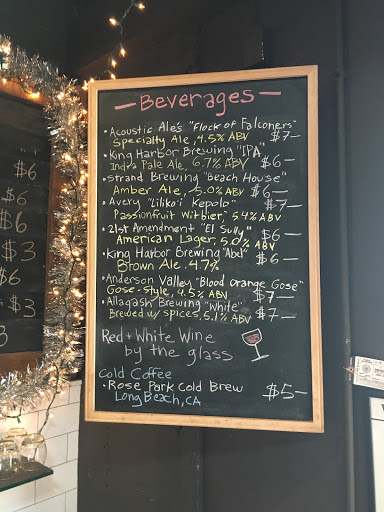 — Beverages —
• Acoustic Ales "Flock of Falconers"
Specialty Ale, 4.5% ABV $7—
• King Harbor Brewing "IPA"
India Pale Ale, 6.7% ABV $6—
• Strand Brewing "Beach House"
Amber Ale, 5.0% ABV $6—
• Avery "Liliko'i Kepolo" $7—
Passionfruit Witbier, 5.4% ABV
• 21st Amendment "El Sully" $6—
American Lager, 5.0% ABV
• King Harbor Brewing "Abel" $6—
Brown Ale . 4.7%
• Anderson Valley "Blood Orange Gose"
Gose-Style, 4.5% ABV $7—
• Allagash Brewing "White" $7—
Brewed w/ spices, 5.1% ABV
Red + White Wine
by the glass
Cold Coffee
• Rose Park Cold Brew $5—
Long Beach, CA
$6
$6
$6
$3
$6
$3
3